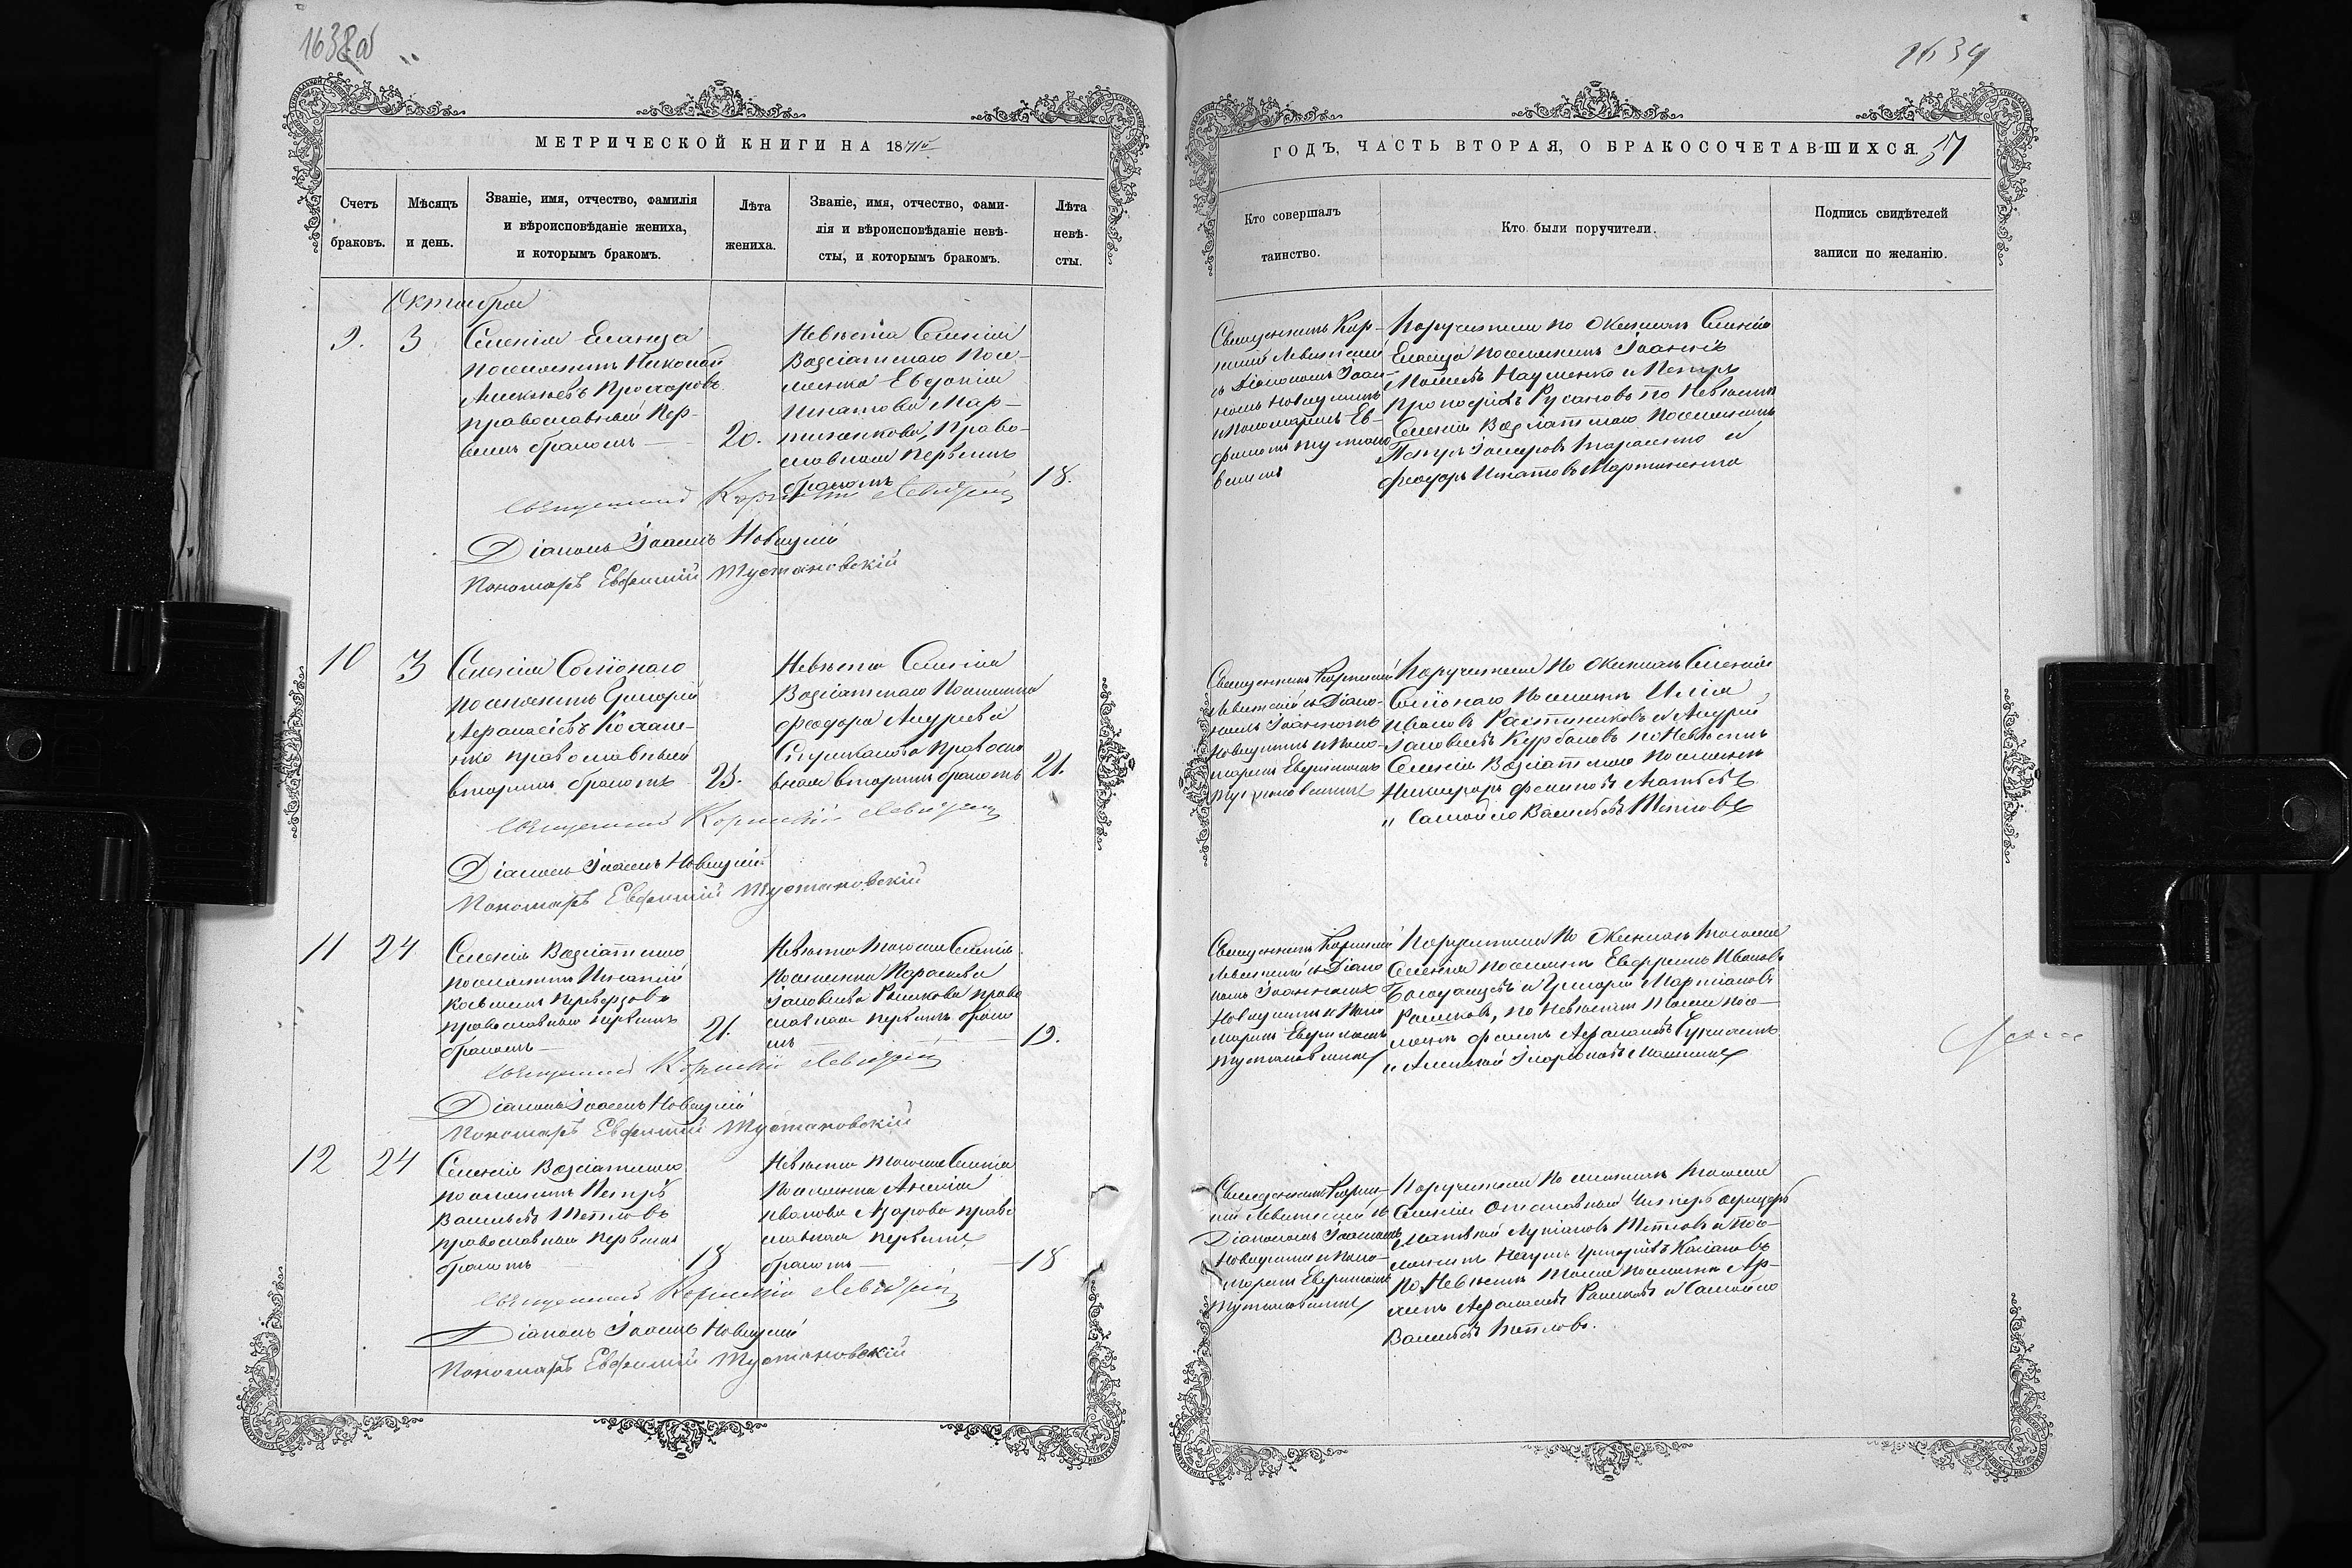 1638 об
МЕТРИЧЕСКОЙ КНИГИ НА 1871й
Счетъ браковъ.
Мѣсяцъ и день.
Званіе, имя, отчество, фамилія
и вѣроисповѣданіе жениха,
и которымъ бракомъ.
Лѣта
жениха.
Званіе, имя, отчество, фами-
лія и вѣроисповѣданіе невѣ-
сты, и которымъ бракомъ.
Лѣта
невѣ-
сты.
Октября
9.
3
Селенія Еланца
поселянинъ Николай
Алексѣевъ Прохоровъ
православный пер-
вымъ бракомъ
20.
Невѣста Селенія
Возсіатскаго посе-
лянка Евдокія
Игнатова Мар-
тиненкова, право-
славная первымъ
бракомъ
18.
Священникъ Корнилій Левитскій
Діаконъ Іоаннъ Новицкій
Пономарь Евфимій Тустановскій
10
3
Селенія
поселянинъ Григорій
Афанасіевъ
православный
вторымъ бракомъ
23.
Невѣста Селенія
Возсіатскаго поселянка
Феодора Андреева
правосла
вная вторымъ бракомъ
21.
Священникъ Корнилій Левитскій
Діаконъ Іоаннъ Новицкій
Пономарь Евфимій Тустановскій
11
24
Селенія Возсіатскаго
поселянинъ Игнатій
православный первымъ
бракомъ
21.
Невѣста тогоже Селенія
поселянка Параскева
Іаковлева Рашкова право
славная первымъ брако
мъ
19.
Священникъ Корнилій Левитскій
Діаконъ Іоаннъ Новицкій
Пономарь Евфимій Тустановскій
12
24
Селенія Возсіатскаго
поселянинъ Петръ
Васильевъ Тепловъ
православный первымъ
бракомъ
18
Невѣста тогоже Селенія
поселянка
Иванова Азарова право
славная первымъ
бракомъ
18
Священникъ Корнилій Левитскій
Діаконъ Іоаннъ Новицкій
Пономарь Евфимій Тустановскій
1639
ГОДЪ, ЧАСТЬ ВТОРАЯ, О БРАКОСОЧЕТАВШИХСЯ. 57
Кто совершалъ
таинство.
Кто были поручители.
Подпись свидѣтелей
записи по желанію.
Священникъ Кор-
нилій Левитскій
съ Діакономъ Іоан-
номъ Новицкимъ
и пономаремъ Ев-
фиміемъ Тустано
вскимъ
Поручители по женихѣ Селенія
Еланца поселянинъ Іоаннъ
Моисеевъ Науменко и Петръ
Прокофіевъ Русановъ по невѣстѣ
Селенія Возсіатскаго поселянинъ
Петръ Тарасенко и
Феодоръ Игнатовъ Мартиненко
Священникъ Корнилій
Левитскій съ Діако-
номъ Іоанномъ
Новицкимъ и поно-
маремъ Евфиміемъ
Тустановскимъ
Поручители по женихѣ Селенія
поселянинъ Илія
Ивановъ и Андрей
Іаковлевъ Курбановъ по невѣстѣ
Селенія Возсіатскаго поселянинъ
Никифоръ
и Самойло Васильевъ Тепловъ
Священникъ Корнилій
Левитскій съ Діако
номъ Іоанномъ
Новицкимъ и Поно
маремъ Евфиміемъ
Тустановскимъ
Поручители по женихѣ тогоже
Селенія поселянинъ Евфримъ Ивановъ
и Григорій
Рашковъ, по невѣстѣ тогоже посе-
лянинъ
и Алексѣй
Священникъ Корни-
лій Левитскій съ
Діакономъ Іоанномъ
Новицкимъ и поно-
маремъ Евфиміемъ
Тустановскимъ
Поручители по женихѣ тогоже
Селенія отставный Унтеръ офицеръ
Матвѣй Лукіановъ Тепловъ и посе-
лянинъ Наумъ Григоріевъ
по невѣстѣ тогоже поселянинъ Ар-
хипъ Афанасіевъ Рашковъ и Самойло
Васильевъ Тепловъ.